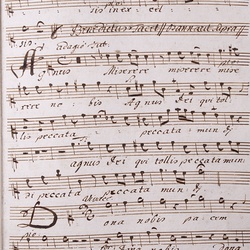 sis in ex= cel=
sis. Benedictus Tacet // Osanna ut supra //
adagio
Agnus Miserere miserere mise=
rere no= bis Agnus dei qui tol=
lis peccata peccata mun= di
agnus dei qui tollis peccata mun=
di peccata mun= di
Dona nobis pacem
Dona nobis